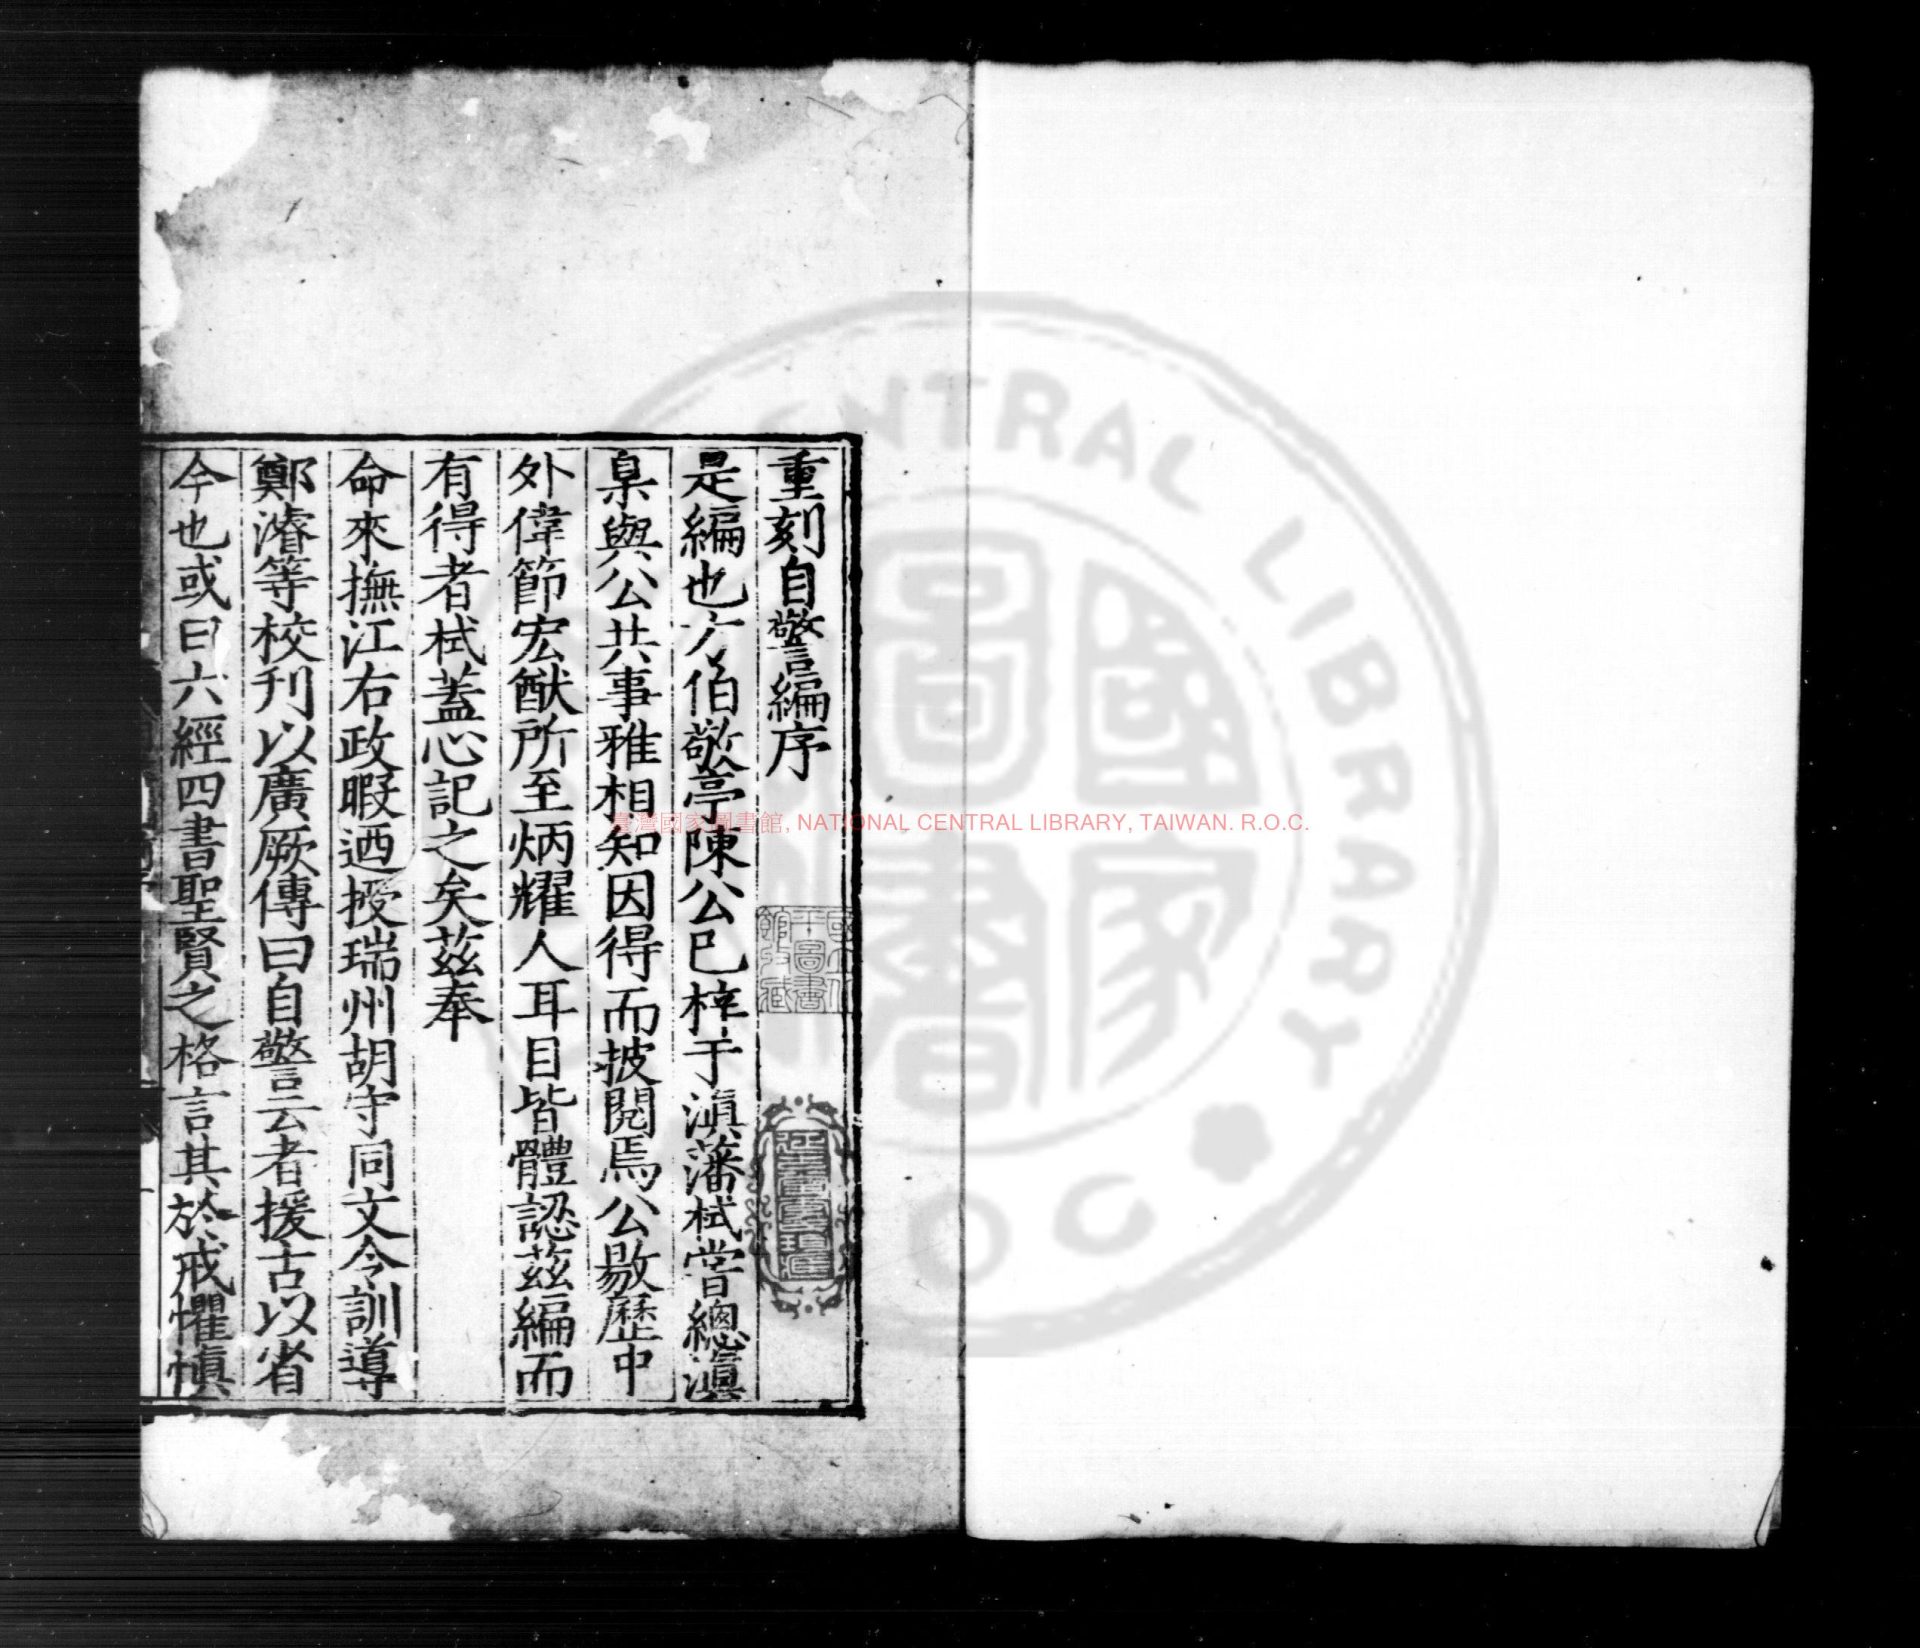 重刻自警編序
是編也方伯敬亭陳公已梓于滇藩栻嘗總滇
臬與公共事雅相知因得而披閱焉公敭歷中
外偉節宏猷所至炳耀人耳目皆體認茲編而
有得者栻蓋心記之矣茲奉
命來撫江右政暇迺授瑞州胡守同文令訓導
鄭濬等校刊以廣厥傳曰自警云者援古以省
今也或曰六經四書聖賢之格言其於戒懼慎
臺灣國家圖書館, NATIONAL CENTRAL LIBRARY, TAIWAN. R.O.C.
CENTRAL LIBRARY
國家圖書